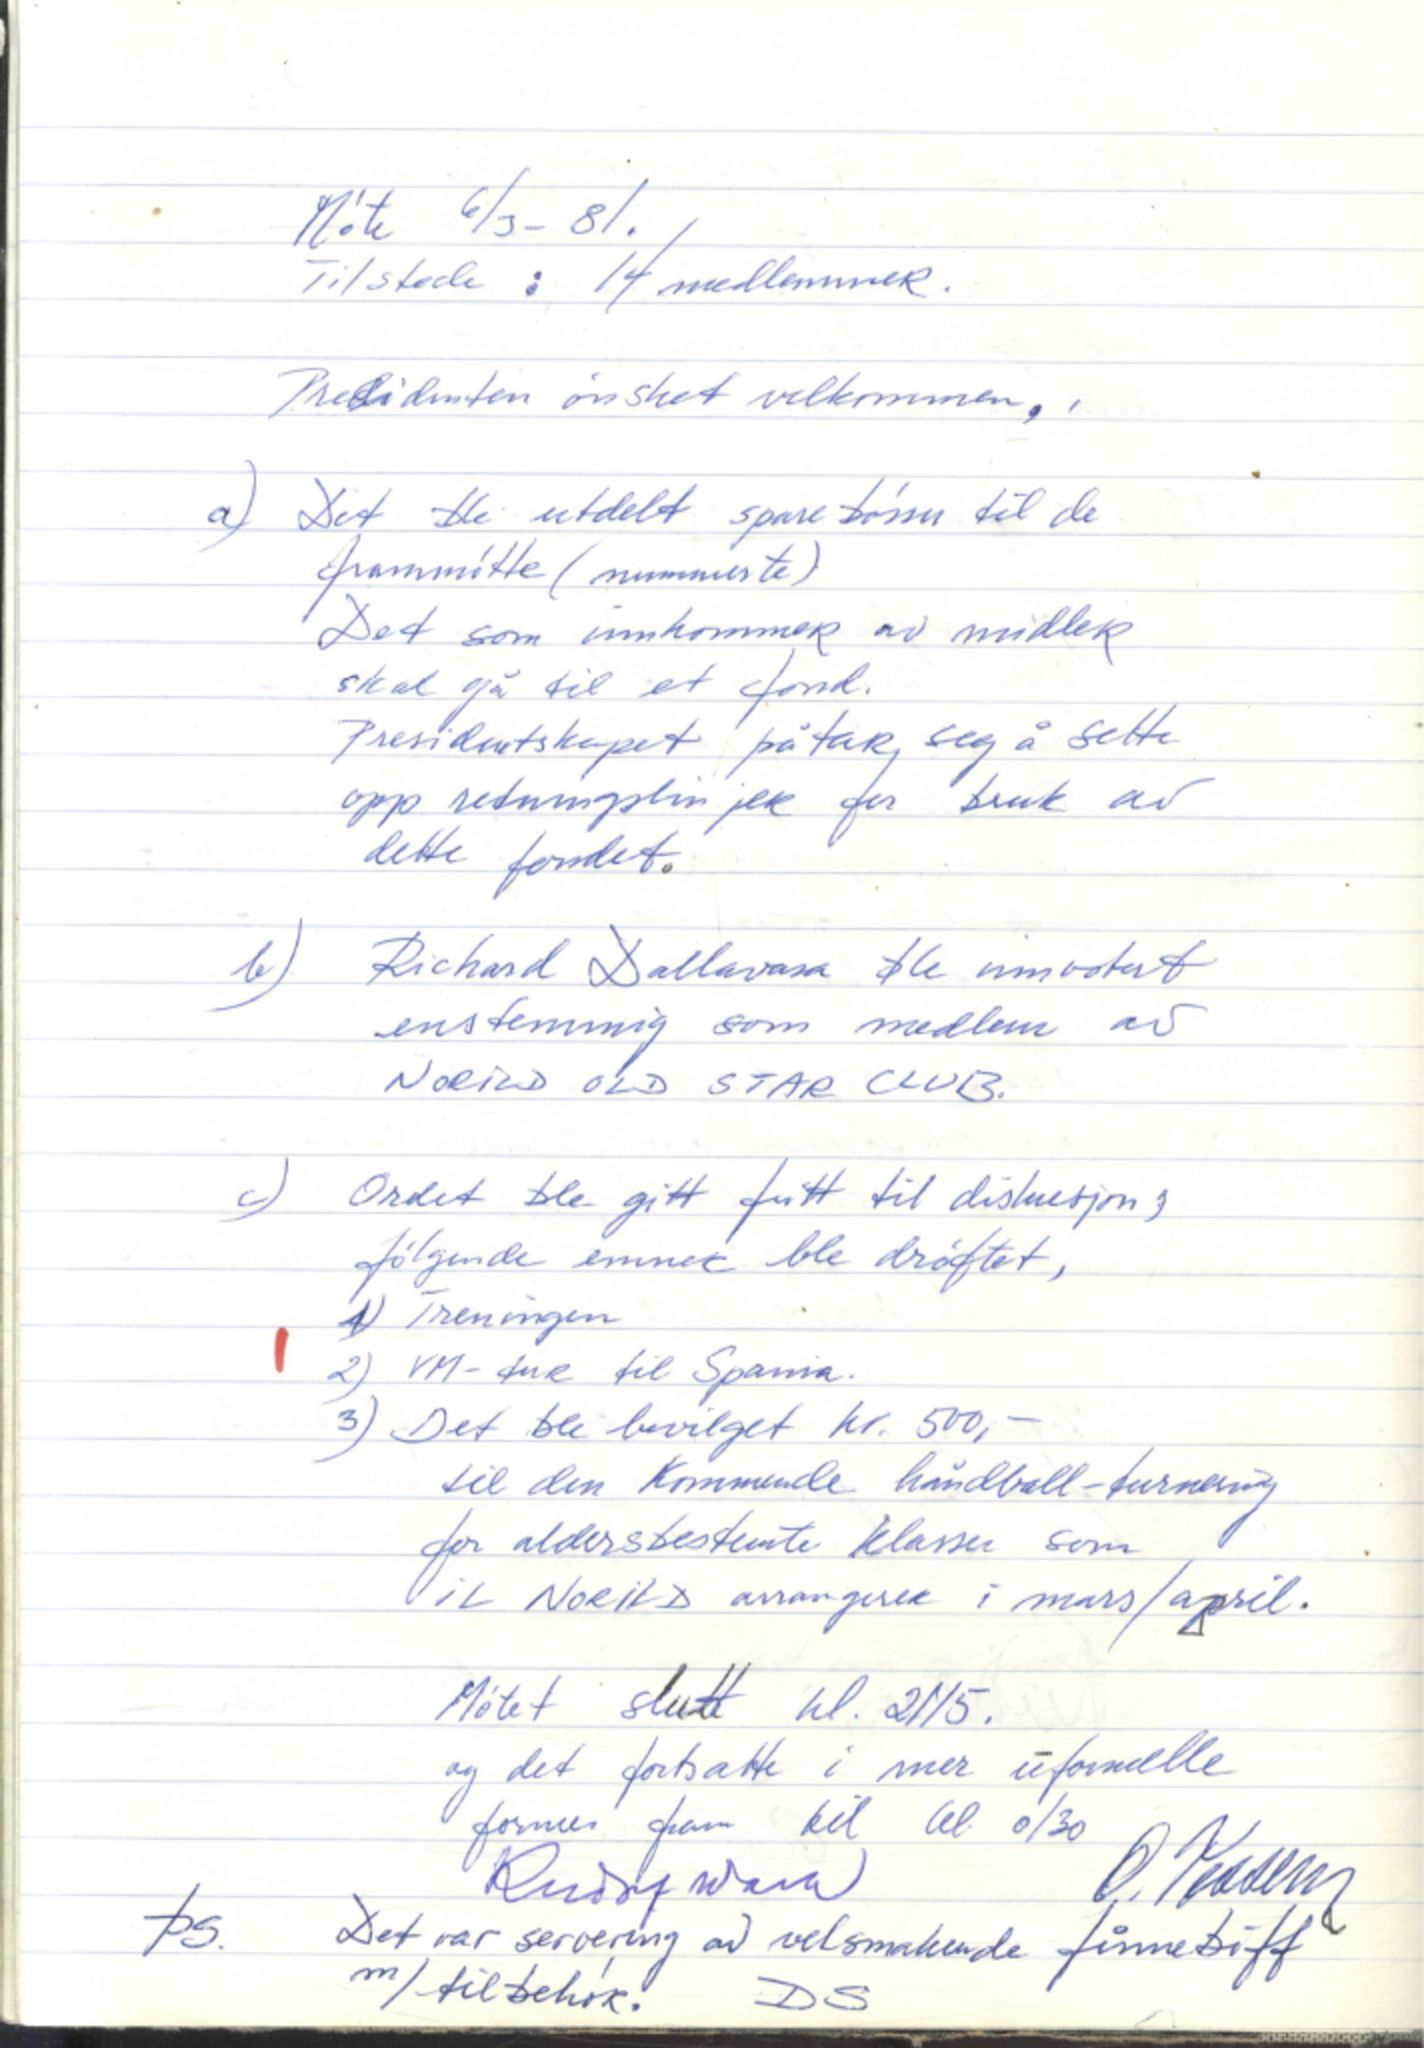 Möte 6/3-81.
Tilstede : 14 medlemmer.
Presidenten önsket velkommen.
a) Det ble utdelt sparebösser til de
frammötte (nummerte)
Det som innkommer av midler
skal gå til et fond.
Presidentskapet påtar seg å sette
opp retningslinjer for bruk av
dette fondet.
b) Richard Dallavara ble innvotert
enstemmig som medlem av
NORILD OLD STAR CLUB.
c) Ordet ble gitt fritt til diskusjon,
følgende emner ble dröftet,
1) Treningen
2) VM-tur til Spania.
3) Det ble bevilget kr. 500,-
til den kommende håndball-turnering
for aldersbestemte klasser som
IL NORILD arrangerer i mars/april.
Mötet slutt kl. 2115.
og det fortsatte i mer uformelle
former fram til kl. 0130
PS. Det var servering av velsmakende finnebiff
m/tilbehör. DS